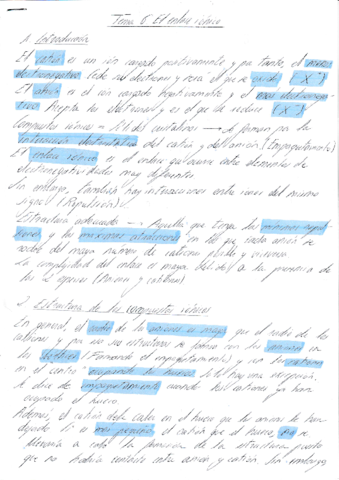 Tema 6. El enlace iónico
1. Introducción
El catión es un ión cargado positivamente y por tanto, el menos
electronegativo. Cede sus electrones y será el que se oxide (X⁺)
El anión es el ión cargado negativamente y el más electronega-
tivo. Acepta los electrones y es el que se reduce (X⁻)
Compuestos iónicos = Sólidos cristalinos → Se forman por la
interacción electrostática del catión y del anión (Empaquetamiento)
El enlace iónico es el enlace que ocurre entre elementos de
electronegatividades muy diferentes
Sin embargo, también hay interacciones entre iones del mismo
signo (Repulsión)
Estructura adecuada → Aquella que tenga las mínimas repul-
siones y las máximas atracciones en las que cada anión se
rodee del mayor número de cationes posible y viceversa
La complejidad del enlace es mayor debido a la presencia de
las 2 especies (Aniones y cationes)
2. Estructura de los compuestos iónicos
En general, el radio de los aniones es mayor que el radio de los
cationes y por eso sus estructuras se forman con los aniones en
los vértices (Formando el empaquetamiento) y con los cationes
en el centro ocupando los huecos. Solo hay una excepción.
Se dice de empaquetamiento cuando los cationes ya han
ocupado el hueco.
Además, el catión debe caber en el hueco que los aniones le han
dejado. Si es más pequeño el catión que el hueco, no se
llevaría a cabo la formación de la estructura puesto
que no habría contacto entre anión y catión. Sin embargo,